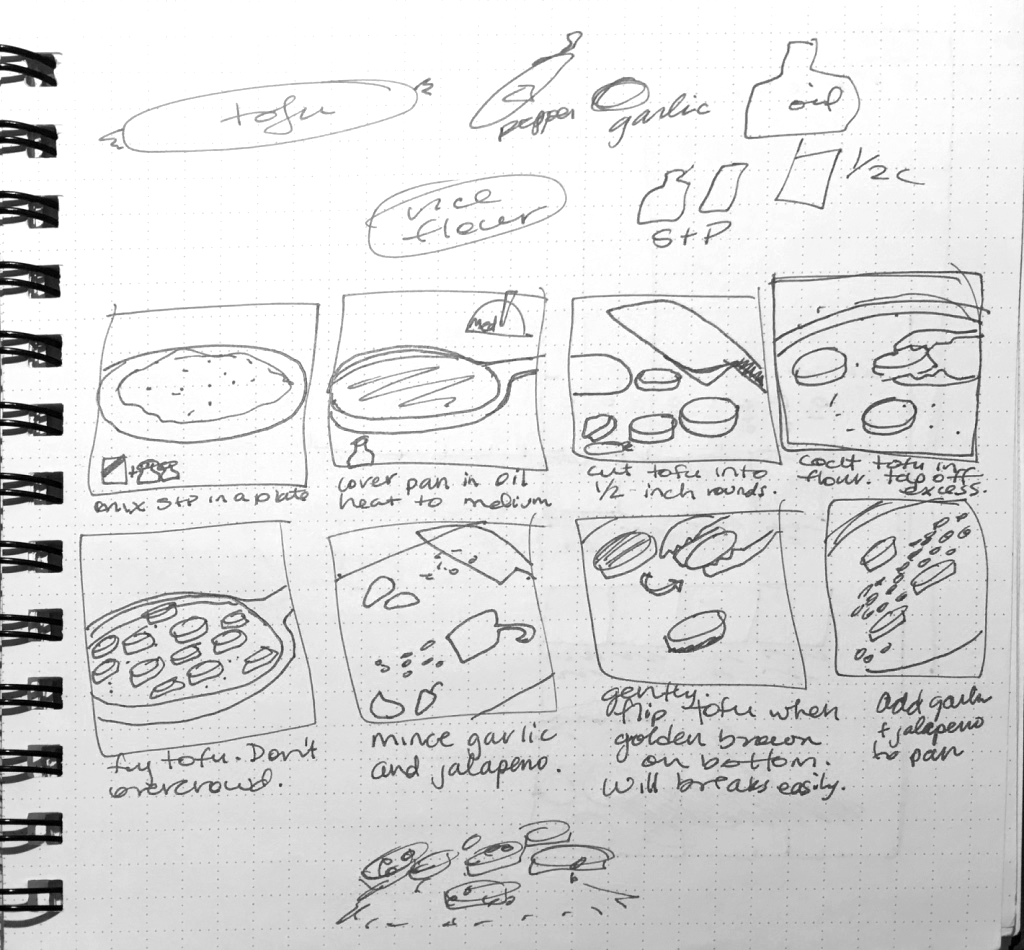 tofu
pepper
garlic
oil
rice
flour
S+P
1/2 c
Med
mix S+P in a plate
cover pan in oil
heat to medium
cut tofu into
1/2 inch rounds.
coat tofu in
flour. tap off
excess.
fry tofu. Don't
overcrowd.
mince garlic
and jalapeno.
gently.
flip tofu when
golden brown
on bottom.
will breaks easily.
add garlic
+ jalapeno
to pan